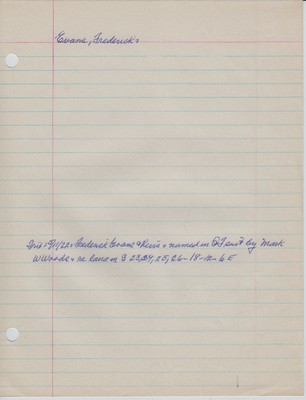 Evans, Frederick
9/11/22 Frederick Evans & Heirs named in QT suit by Mark
W Woods re land in S 23, 24, 25, 26-18-12-6 E